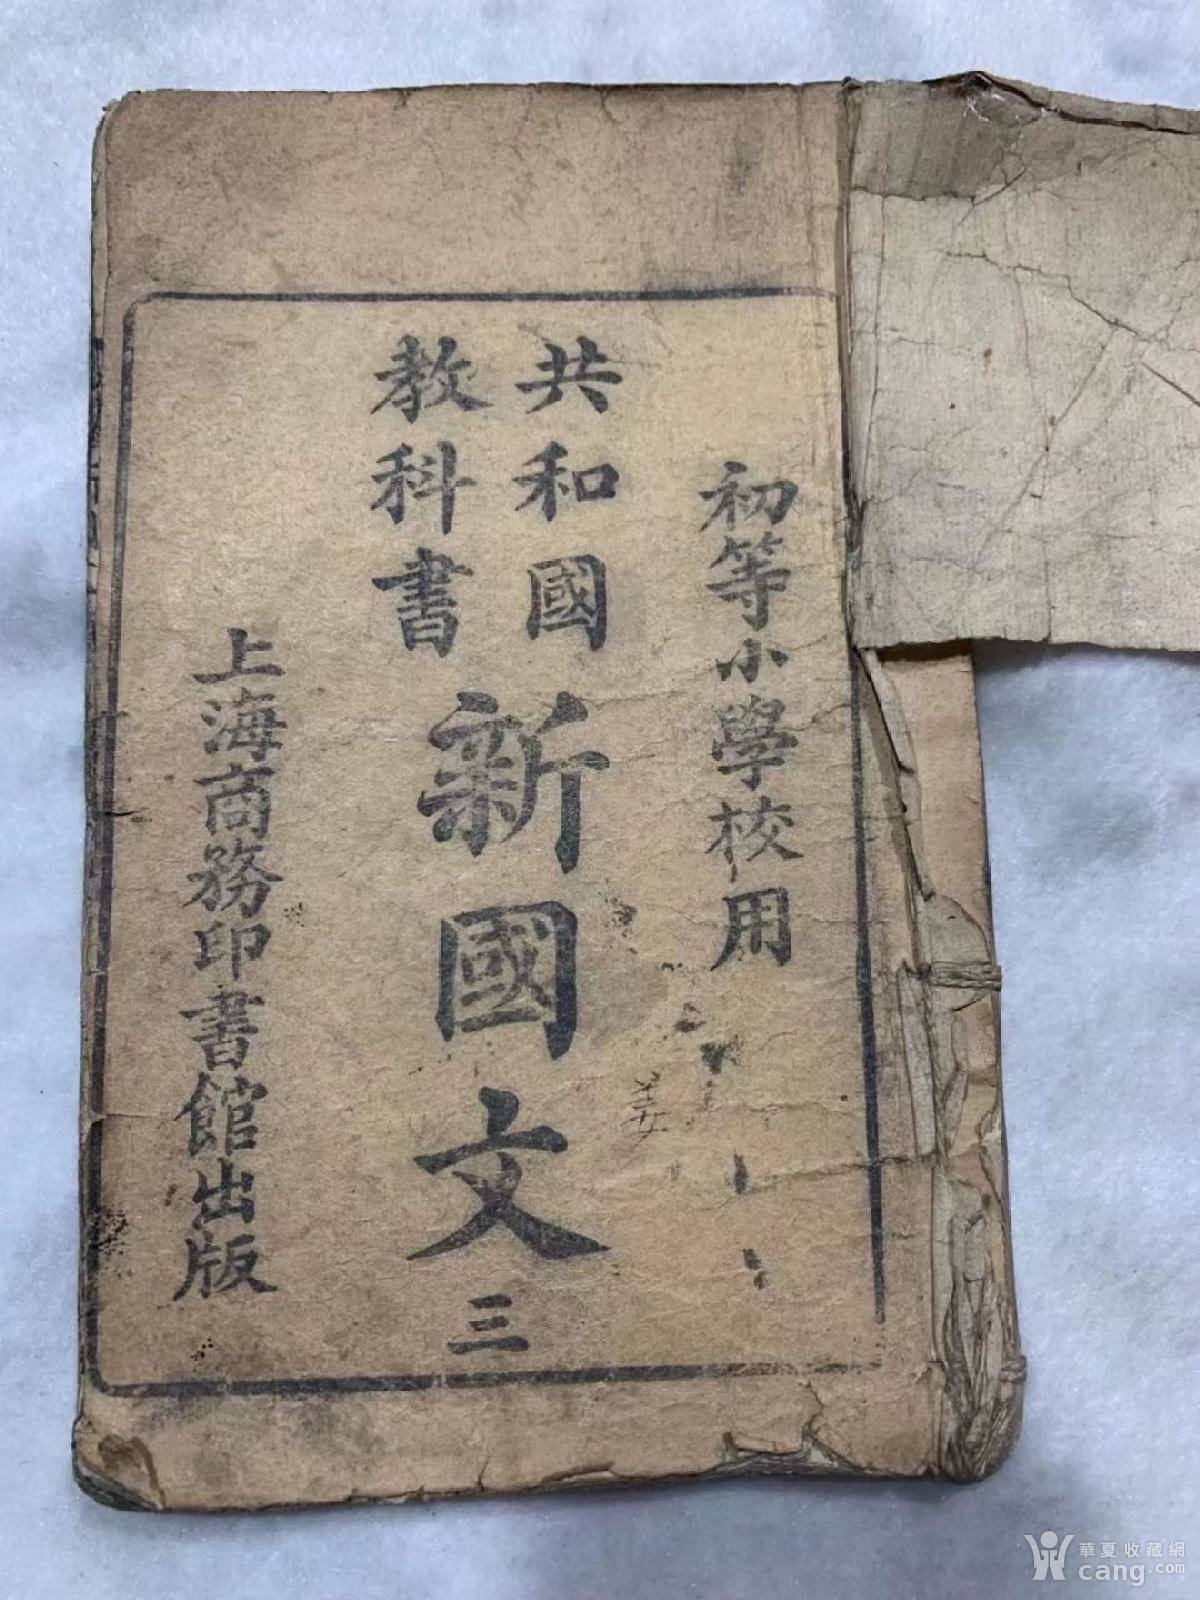 初等小學校用
共和國
教科書
新國文
三
上海商務印書館出版
姜
華夏收藏網
cang.com